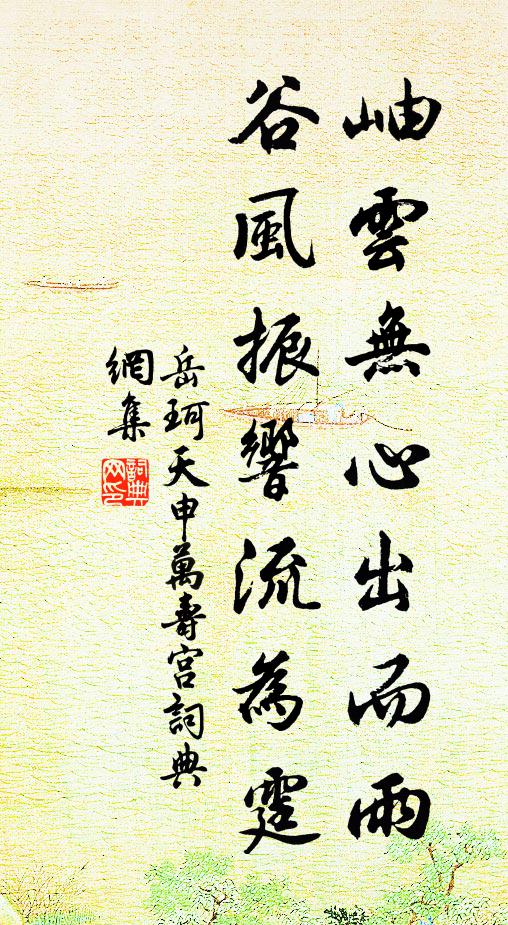 岫雲無心出而雨
谷風振響流為霆
岳珂天申萬壽宮詞典
網集
詞典
网印